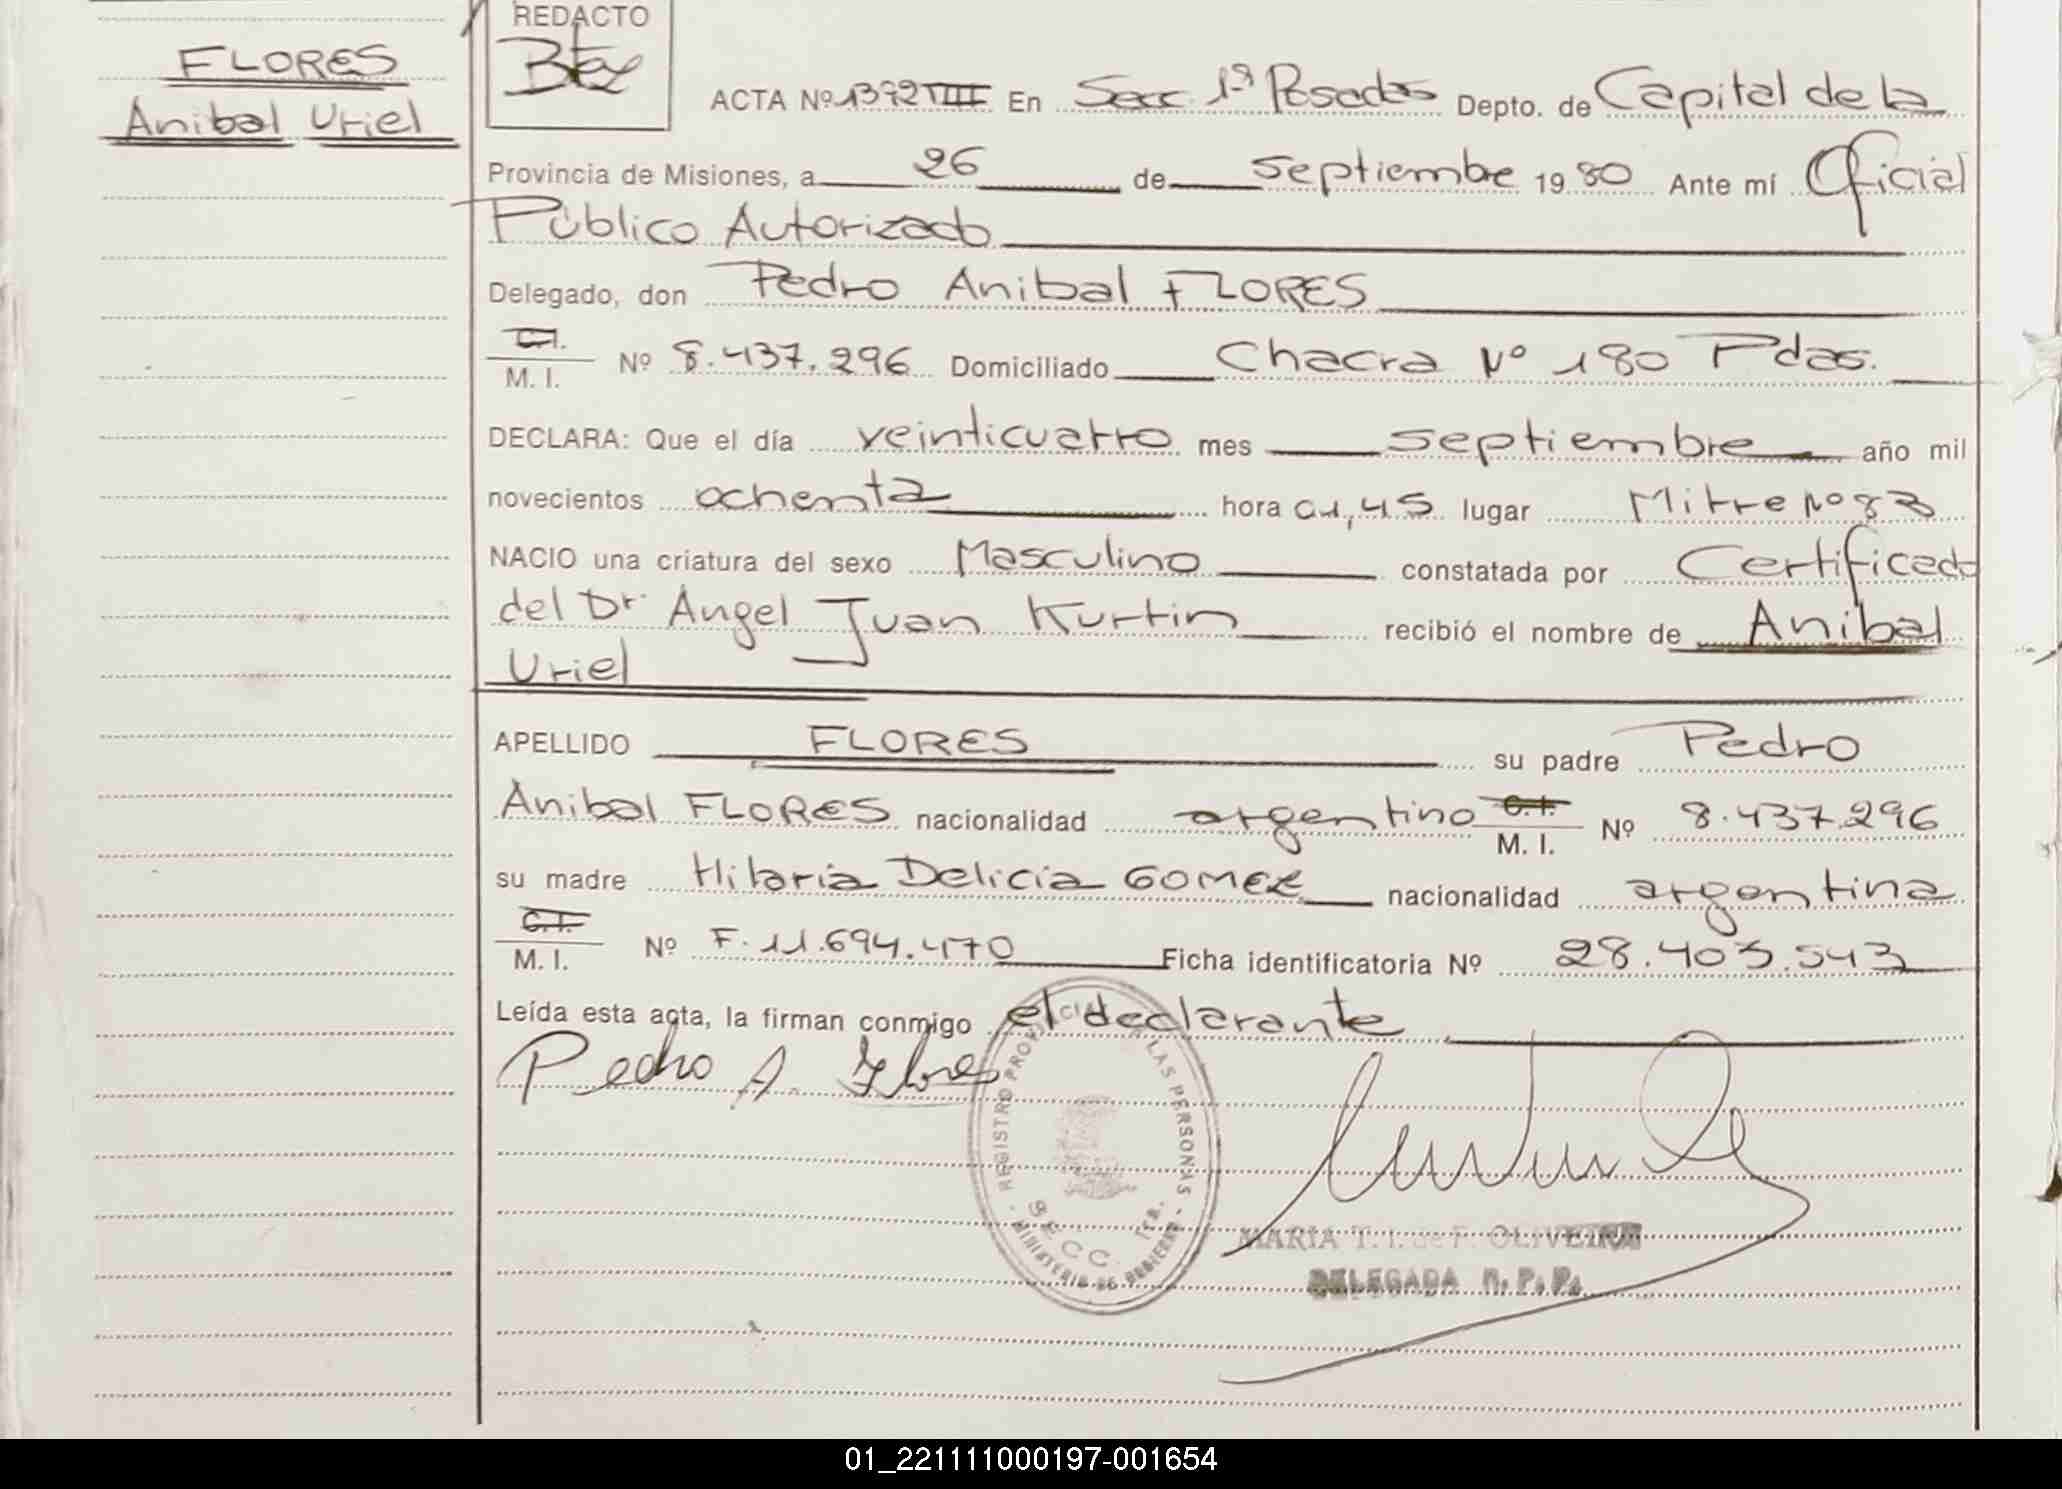 FLORES
Anibal Uriel
REDACTO
ACTA Nº 1372 VIII En Secc. 1ª Posadas Depto. de Capital de la
Provincia de Misiones, a 26 de septiembre 1980 Ante mí Oficial
Público Autorizado
Delegado, don Pedro Anibal FLORES
C.I.
M. I. Nº 8.437.296 Domiciliado Chacra Nº 180 Pdas.
DECLARA: Que el día veinticuatro mes septiembre año mil
novecientos ochenta hora 01,45 lugar Mitre Nº 83
NACIO una criatura del sexo Masculino constatada por Certificado
del Dr. Angel Juan Kurtin recibió el nombre de Anibal
Uriel
APELLIDO FLORES su padre Pedro
Anibal FLORES nacionalidad argentino C.I. M. I. Nº 8.437.296
su madre Hilaria Delicia GOMEZ nacionalidad argentina
C.I.
M. I. Nº F. 11.694.470 Ficha identificatoria Nº 28.403.543
Leída esta acta, la firman conmigo el declarante
Pedro A. Flores
REGISTRO PROVINCIAL LAS PERSONAS
SECC. 1ra.
- MINISTERIO DE GOBIERNO -
MARIA T. I. de F. OLIVEIRA
DELEGADA R. P. P.
01_221111000197-001654